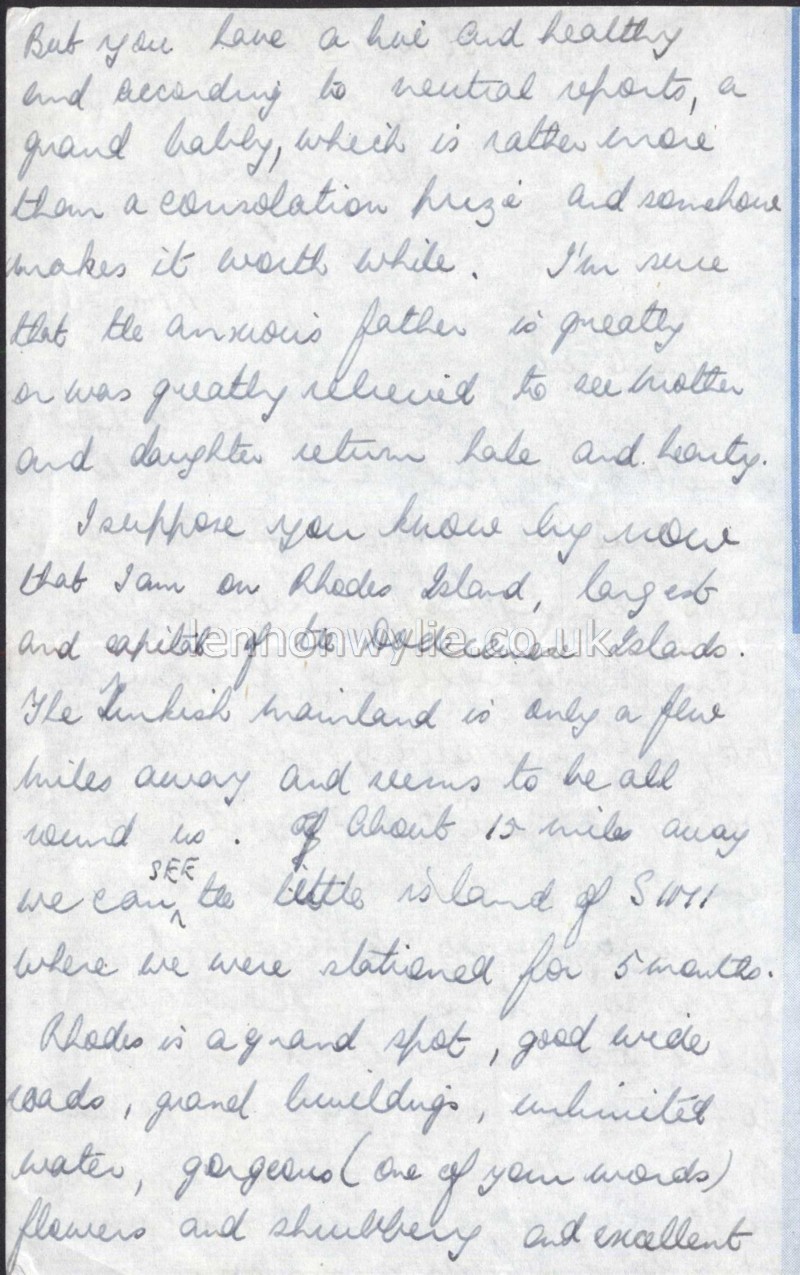 But you have a live and healthy
and according to neutral reports, a
grand babby, which is rather more
than a consolation prize and somehow
makes it worth while. I'm sure
that the anxious father is greatly
or was greatly relieved to see mother
and daughter return hale and hearty.
I suppose you know by now
that I am on Rhodes Island, largest
and capital of the Dodecanese Islands.
lennonwylie.co.uk
The Turkish mainland is only a few
miles away and seems to be all
round us. About 15 miles away
we can SEE the little island of SYMI
where we were stationed for 5 months.
Rhodes is a grand spot, good wide
roads, grand buildings, unlimited
water, gorgeous (one of your words)
flowers and shrubbery and excellent